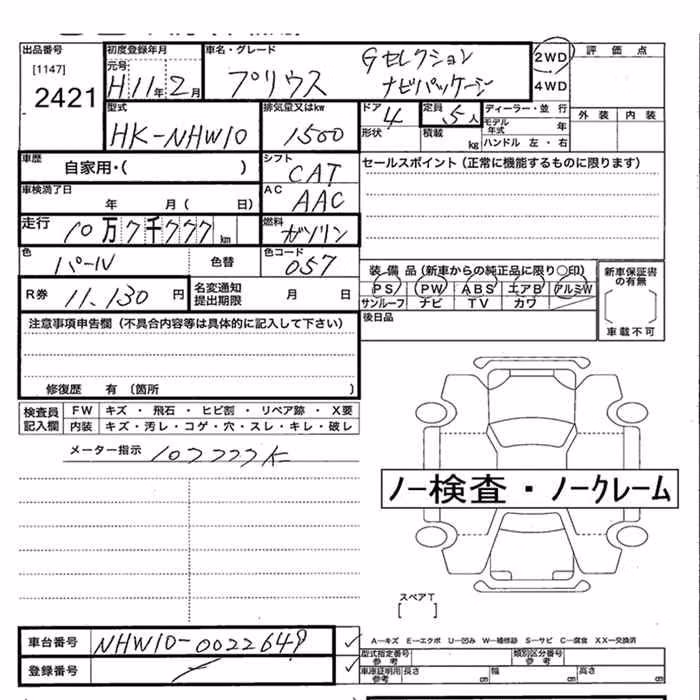 出品番号 初度登録年月 車名・グレード 評価点
[1147] 元号 Gセレクション 2WD
2421 H11年2月 プリウス ナビパッケージ 4WD
型式 排気量又はkw ドア 定員 ディーラー・並 行 外装 内装
HK-NHW10 1500 4 5人 モデル年式 年
形状 積載 kg ハンドル 左・右
車歴 自家用・( ) シフト CAT セールスポイント (正常に機能するものに限ります)
車検満了日 年 月( 日) AC AAC
走行 10万7千777km 燃料 ガソリン
色 パール 色替 色コード 057 装備品 (新車からの純正品に限り○印) 新車保証書の有無
R券 11,130円 名変通知提出期限 月 日 PS PW ABS エアB アルミW
サンルーフ ナビ TV カワ
注意事項申告欄 (不具合内容等は具体的に記入して下さい) 後日品 車載不可
修復歴 有 (箇所 )
検査員記入欄 FW キズ・飛石・ヒビ割・リペア跡・X要
内装 キズ・汚レ・コゲ・穴・スレ・キレ・破レ
メーター指示 107777K
ノー検査・ノークレーム
スペアT
[ ]
車台番号 NHW10-0022649 A—キズ E—エクボ U—凹み W—補修跡 S—サビ C—腐食 XX—交換済
型式指定番号 参考 類別区分番号 参考
登録番号 車庫証明用 参考 長さ cm 幅 cm 高さ cm